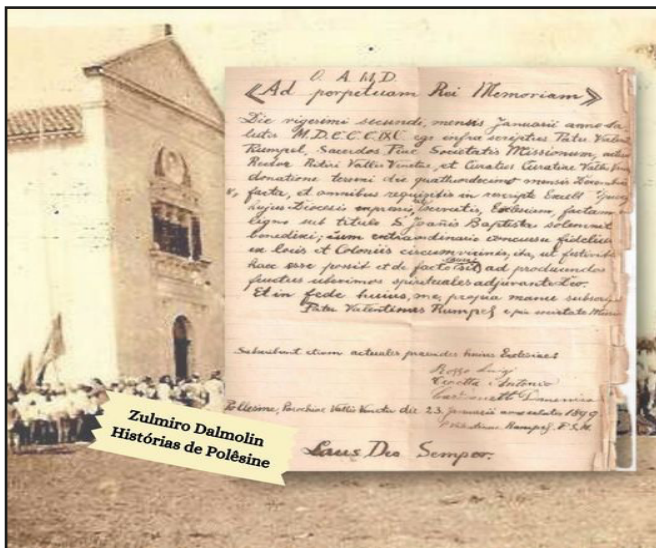 O. A. M. D.
«Ad porpetuam Rei Memoriam»
Die vigesimi secundi, mensis Januarii anno sa
lutis M.D.C.C.C.IXC ego infra scriptus Pater Valent
Rumpel, Sacerdos Piae Societatis Missionum, actu
Rector Vallis Venetus, et Curatus Curatiae Vallis
donatione terreni die quattuordecimo mensis
facta, et omnibus requisitis in rescripto Excell
hujus Diocesis expressis, Ecclesiam, factam
ligno sub titulo S. Joanis Baptistae solemnit
benedixi; cum extraordinario concursu fidelium
ex locis et Coloniis circumvicinis, ita, ut
haec esse possit et de facto sit ad producendos
fructus uberimos spirituales adjuvante Deo.
Et in fede huius, me, propria manu subscripsi
Pater Valentinus Rumpel e pia societate
Subscribunt etiam actuales praesides huius Ecclesiae
Rosso Luigi
Antonio
Domenico
Pollesine, Parochiae Vallis Venetae die 23 Januarii anno salutis 1899
Rumpel. P.S.M.
Laus Deo Semper.
Zulmiro Dalmolin
Histórias de Polêsine